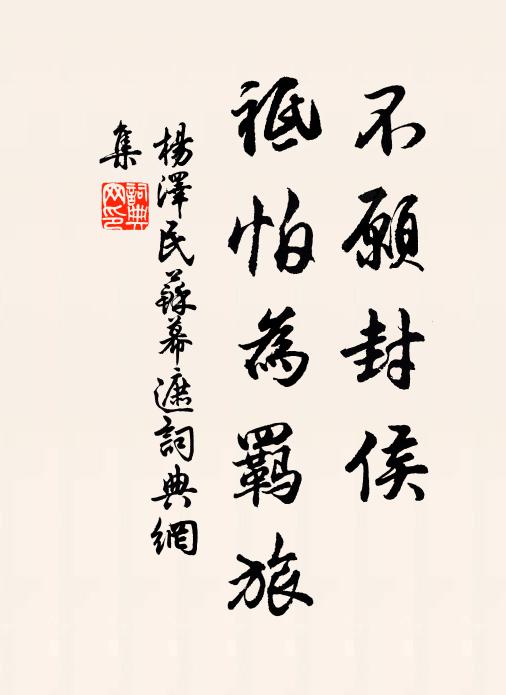 不願封侯
祗怕為羁旅
楊澤民蘇幕遮詞典網
集
詞典網印